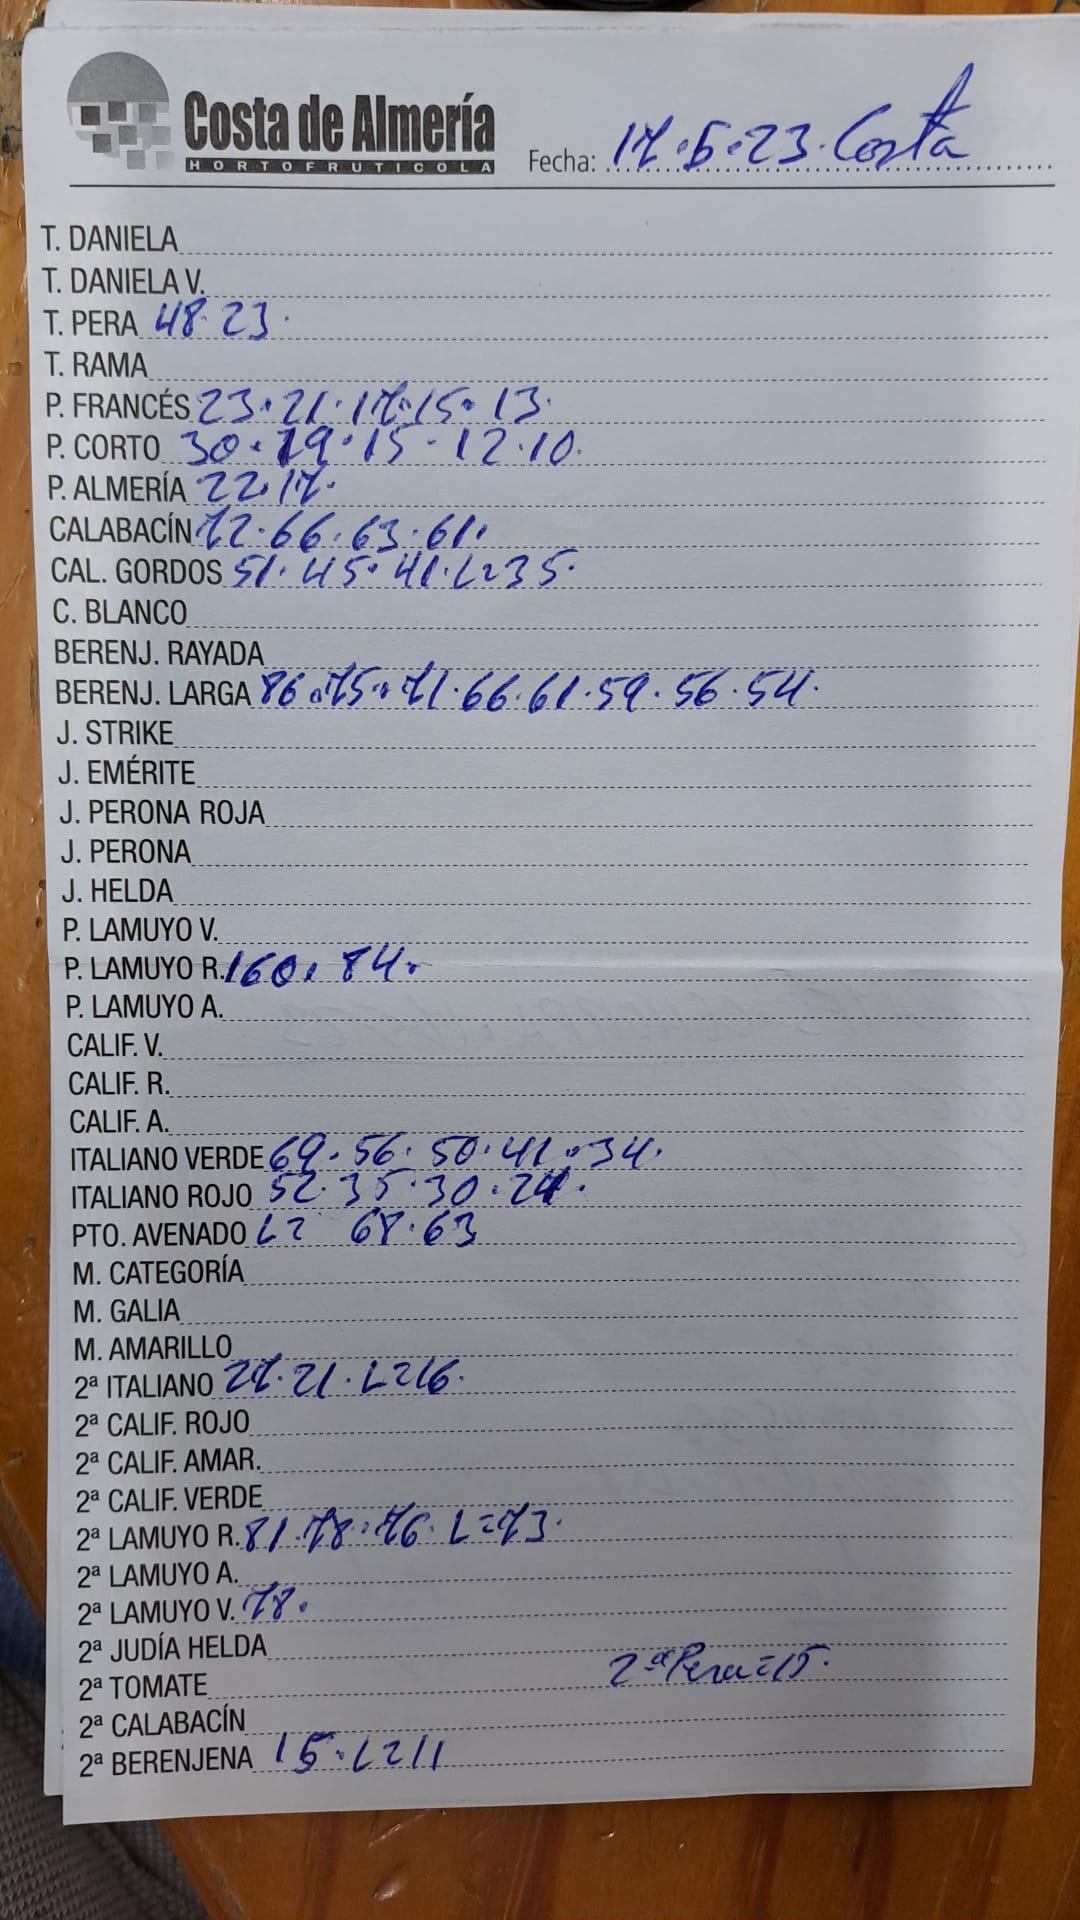 Costa de Almería
HORTOFRUTICOLA
Fecha: 17.5.23. Costa
T. DANIELA
T. DANIELA V.
T. PERA 48. 23.
T. RAMA
P. FRANCÉS 23. 21. 17. 15. 13.
P. CORTO 30. 19. 15. 12. 10.
P. ALMERÍA 22. 17.
CALABACÍN 72. 66. 63. 61.
CAL. GORDOS 51. 45. 41. L=35.
C. BLANCO
BERENJ. RAYADA
BERENJ. LARGA 86. 75. 71. 66. 61. 59. 56. 54.
J. STRIKE
J. EMÉRITE
J. PERONA ROJA
J. PERONA
J. HELDA
P. LAMUYO V.
P. LAMUYO R. 160. 84.
P. LAMUYO A.
CALIF. V.
CALIF. R.
CALIF. A.
ITALIANO VERDE 69. 56. 50. 41. 34.
ITALIANO ROJO 52. 35. 30.
PTO. AVENADO L= 68. 63
M. CATEGORÍA
M. GALIA
M. AMARILLO
2ª ITALIANO 27. 21. L=16.
2ª CALIF. ROJO
2ª CALIF. AMAR.
2ª CALIF. VERDE
2ª LAMUYO R. 81. 78. 76. L=73.
2ª LAMUYO A.
2ª LAMUYO V. 78.
2ª JUDÍA HELDA
2ª Pera=15.
2ª TOMATE
2ª CALABACÍN
2ª BERENJENA 15. L=11